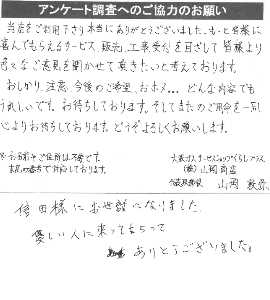 アンケート調査へのご協力のお願い
当店をご利用下さり本当にありがとうございました。もっと皆様に
喜んでもらえるサービス、販売、工事受付を目ざして皆様より
色々なご意見を聞かせて頂きたいと考えております。
おしかり、注意、今後のご希望、おホメ…どんな内容でも
うれしいです。お待ちしております。そしてまたのご用命を一同
心よりお待ちしております。どうぞよろしくお願いします。
※お名前やご住所は不要です。
大阪ガスサービスショップ
(株)山岡商店
山岡
倍田様にお世話になりました。
優しい人に来てもらって
ありとうございました。